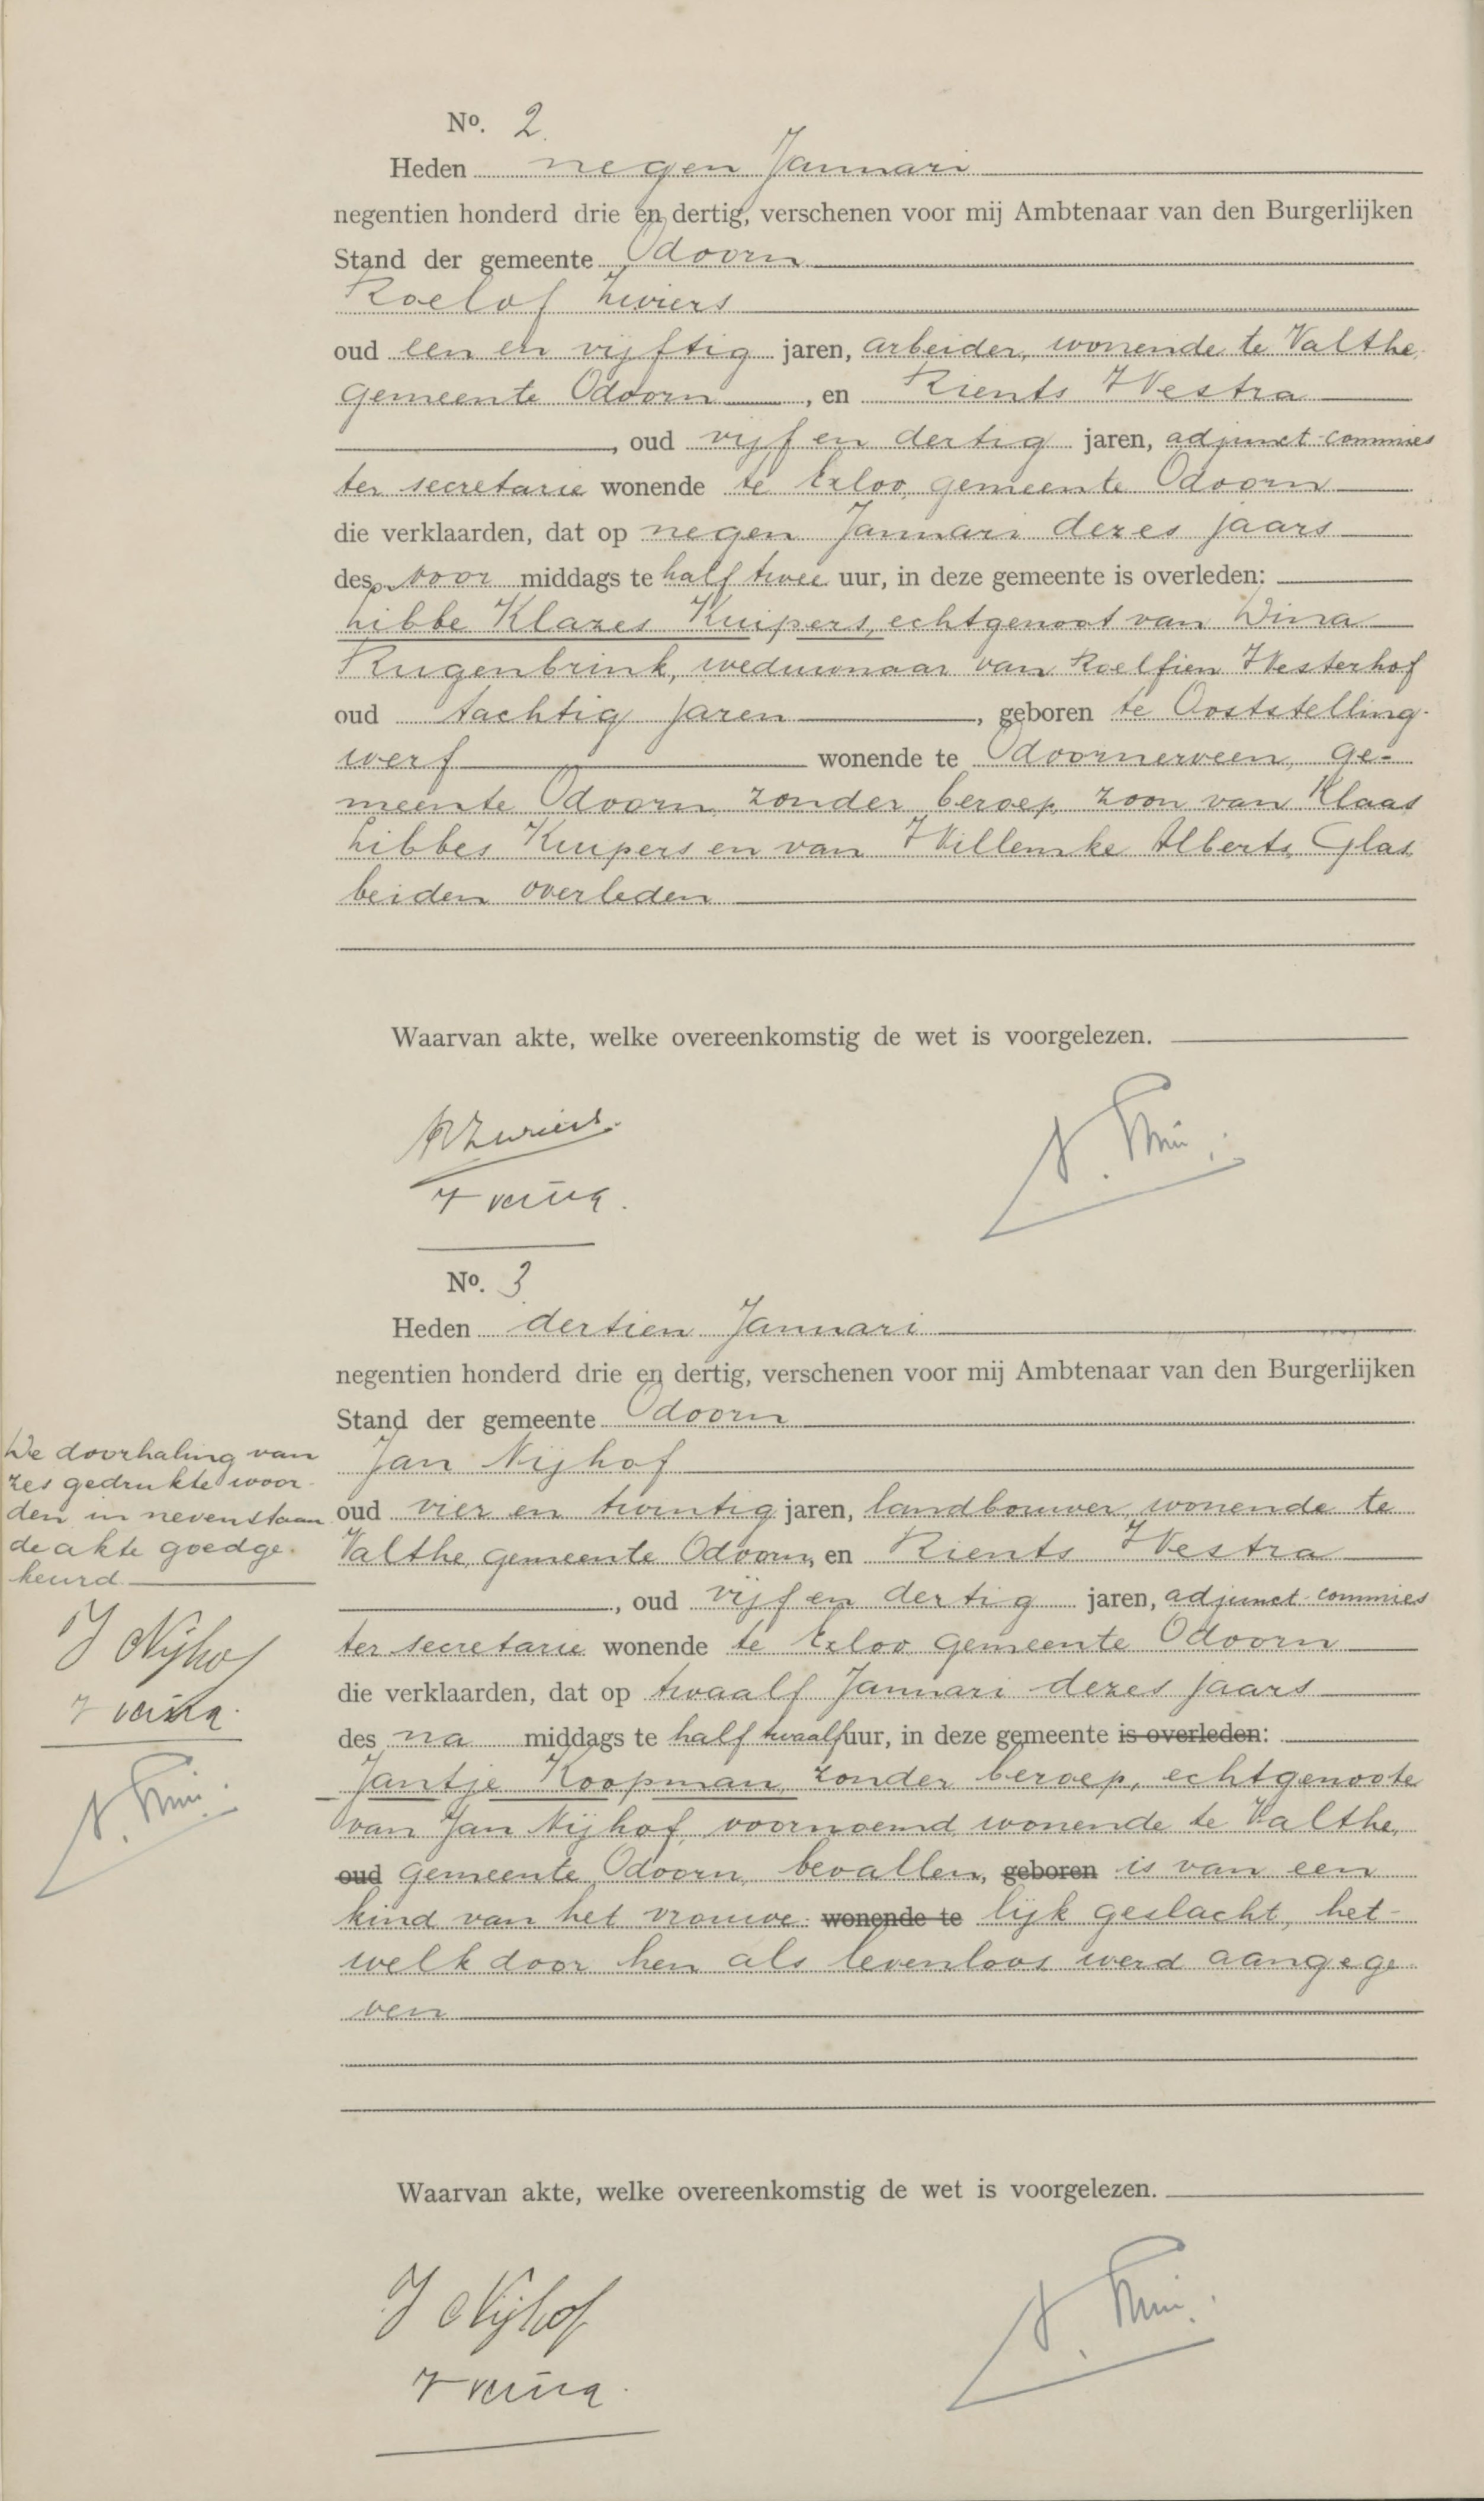 No. 2.
Heden negen Januari
negentien honderd drie en dertig, verschenen voor mij Ambtenaar van den Burgerlijken
Stand der gemeente Odoorn
Roelof Zwiers
oud een en vijftig jaren, arbeider, wonende te Valthe,
gemeente Odoorn, en Rients Westra
, oud vijf en dertig jaren, adjunct-commies
ter secretarie wonende te Exloo, gemeente Odoorn
die verklaarden, dat op negen Januari dezes jaars
des voor middags te half twee uur, in deze gemeente is overleden:
Libbe Klazes Kuipers, echtgenoot van Dina
Rugenbrink, weduwnaar van Roelfien Westerhof
oud tachtig jaren, geboren te Ooststelling-
werf wonende te Odoornerveen, ge-
meente Odoorn, zonder beroep, zoon van Klaas
Libbes Kuipers en van Willemke Alberts Glas
beiden overleden
Waarvan akte, welke overeenkomstig de wet is voorgelezen.
R Zwiers.
No. 3
Heden dertien Januari
negentien honderd drie en dertig, verschenen voor mij Ambtenaar van den Burgerlijken
Stand der gemeente Odoorn
Jan Nijhof
oud vier en twintig jaren, landbouwer, wonende te
Valthe, gemeente Odoorn, en Rients Westra
, oud vijf en dertig jaren, adjunct-commies
ter secretarie wonende te Exloo gemeente Odoorn
die verklaarden, dat op twaalf Januari dezes jaars
des na middags te half twaalf uur, in deze gemeente is overleden:
Jantje Koopman, zonder beroep, echtgenoote
van Jan Nijhof, voornoemd, wonende te Valthe,
oud gemeente Odoorn, bevallen, geboren is van een
kind van het vrouwe- wonende te lijk geslacht, het-
welk door hen als levenloos werd aangege-
ven
Waarvan akte, welke overeenkomstig de wet is voorgelezen.
J Nijhof
De doorhaling van
zes gedrukte woor-
den in nevenstaan
de akte goedge-
keurd.
J Nijhof